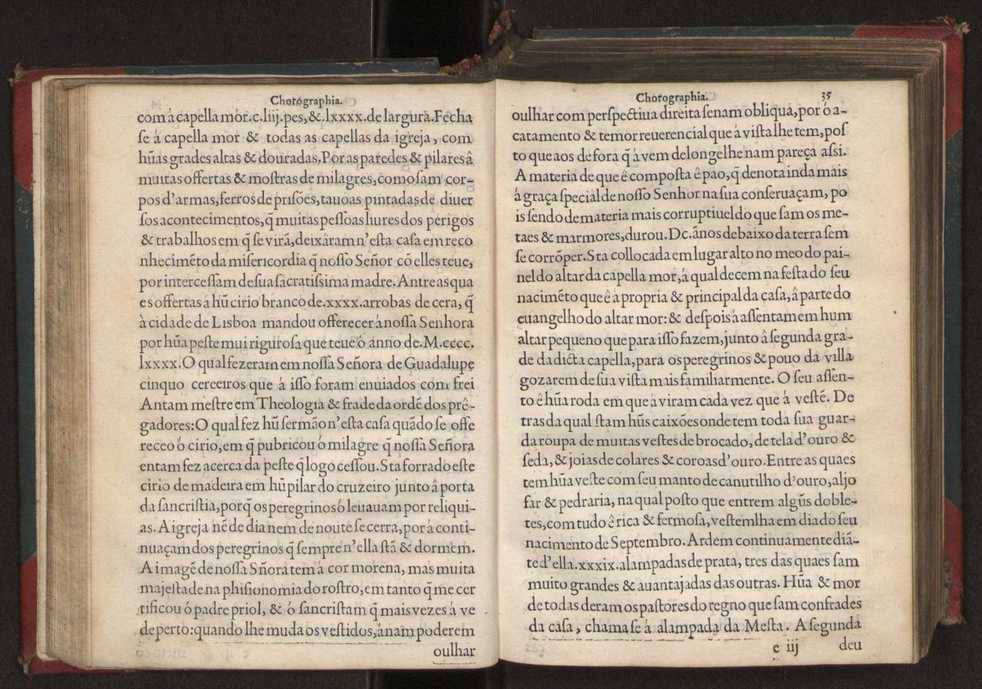 Chorographia.
com à capella mòr.c.liij.pes,&.lxxxx.de largura.Fecha
se à capella mor & todas as capellas da igreja, com
hũas grades altas & douradas.Por as paredes & pilares â
muitas offertas & mostras de milagres,como sam cor-
pos d'armas,ferros de prisões,tauoas pintadas de diuer
sos acontecimentos,q̃ muitas pessoas liures dos perigos
& trabalhos em q̃ se virã,deixàram n'esta casa em reco
nhecimẽto da misericordia q̃ nosso Señor cõ elles teue,
por intercessam de sua sacratissima madre. Antre as qua
es offertas â hũ cirio branco de.xxxx.arrobas de cera, q̃
à cidade de Lisboa mandou offerecer à nossa Senhora
por hũa peste mui rigurosa que teue ó anno de.M.cccc.
lxxxx.O qual fezeram em nossa Señora de Guadalupe
cinquo cereeiros que à isso foram enuiados com frei
Antam mestre em Theologia & frade da ordẽ dos prê-
gadores:O qual fez hũ sermão n'esta casa quãdo se offe
receo ó cirio,em q̃ pubricou ó milagre q̃ nossa Señora
entam fez acerca da peste q̃ logo cessou.Sta forrado este
cirio de madeira em hũ pilar do cruzeiro junto à porta
da sancristia,porq̃ os peregrinos ó leuauam por reliqui-
as. A igreja nẽ de dia nem de noute se cerra,por à conti-
nuaçam dos peregrinos q̃ sempre n'ella stã & dormẽm.
A imagẽ de nossa Sñora tem à cor morena, mas muita
majestade na phisionomia do rostro,em tanto q̃ me cer
tificou ó padre priol, & ó sancristam q̃ mais vezes à ve
de perto:quando lhe muda os vestidos,ànam poderem
oulhar
Chorographia. 35
oulhar com perspectiua direita senam obliqua,por ó a-
catamento & temor reuerencial que à vista lhe tem,pos
to que aos de fora q̃ à vem de longe lhe nam pareça assi.
A materia de que ê composta ê pao,q̃ denota inda mais
à graça special de nosso Senhor na sua conseruaçam, po
is sendo de materia mais corruptiuel do que sam os me-
taes & marmores,durou.Dc.ànos debaixo da terra sem
se corrõper.Sta collocada em lugar alto no meo do pai-
nel do altar da capella mor,à qual decem na festa do seu
nacimẽto que ê a propria & principal da casa,â parte do
euangelho do altar mor:& despois à assentam em hum
altar pequeno que para isso fazem,junto â segunda gra-
de da dicta capella,para os peregrinos & pouo da villa
gozarem de sua vista mais familiarmente. O seu assen-
to ê hũa roda em que à viram cada vez que à vestẽ. De
tras da qual stam hũs caixões onde tem toda sua guar-
da roupa de muitas vestes de brocado,de tela d'ouro &
seda,& joias de colares & coroas d'ouro.Entre as quaes
tem hũa veste com seu manto de canutilho d'ouro,aljo
far & pedraria, na qual posto que entrem algũs doble-
tes,com tudo ê rica & fermosa,vestemlha em dia do seu
nacimento de Septembro. Ardem continuamente diã-
te d'ella.xxxix.alampadas de prata, tres das quaes sam
muito grandes & auantajadas das outras. Hũa & mor
de todas deram os pastores do regno que sam confrades
da casa, chamase à alampada da Mesta. A segunda
e iij deu